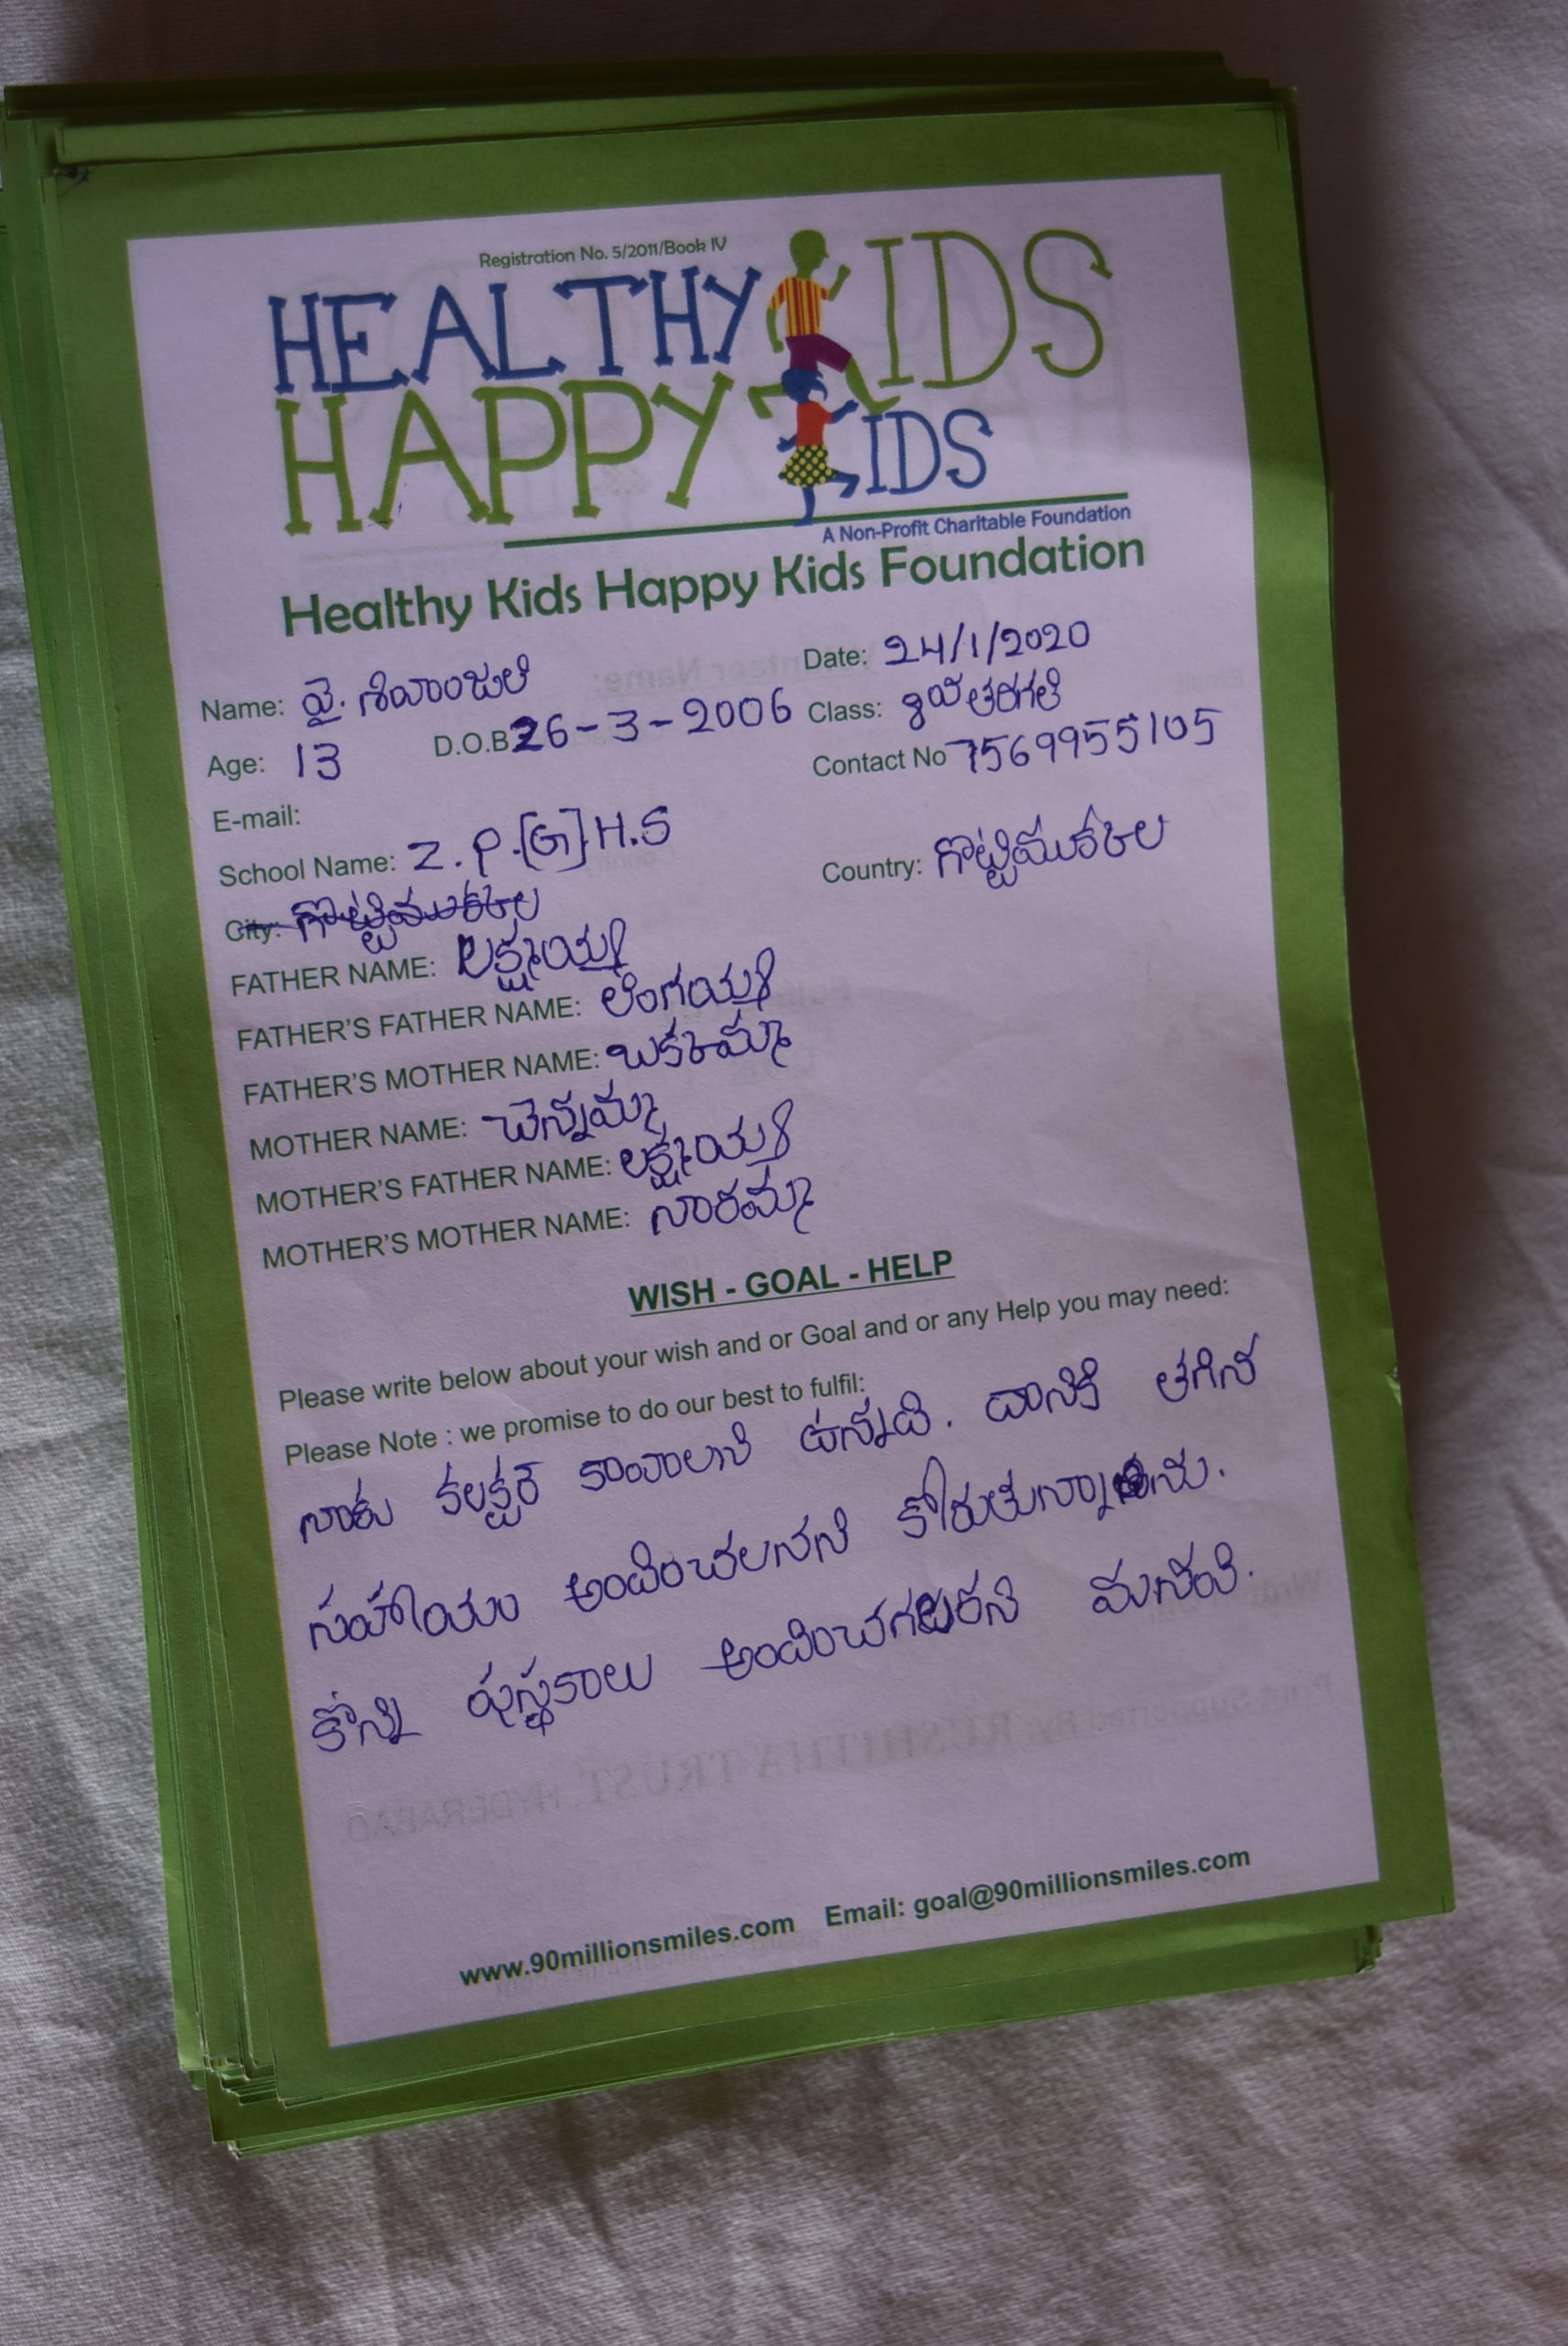 Registration No. 5/2011/Book IV
HEALTHY KIDS
HAPPY KIDS
A Non-Profit Charitable Foundation
Healthy Kids Happy Kids Foundation
Name: వై. శివాంజలి Date: 24/1/2020
Age: 13 D.O.B 26-3-2006 Class: 8వ తరగతి
E-mail: Contact No 7569955105
School Name: Z.P.[G].H.S
City: గొట్టిముక్కల Country: గొట్టిముక్కల
FATHER NAME: లక్ష్మయ్య
FATHER'S FATHER NAME: లింగయ్య
FATHER'S MOTHER NAME: బక్కమ్మ
MOTHER NAME: చెన్నమ్మ
MOTHER'S FATHER NAME: లక్ష్మయ్య
MOTHER'S MOTHER NAME: నారమ్మ
WISH - GOAL - HELP
Please write below about your wish and or Goal and or any Help you may need:
Please Note : we promise to do our best to fulfil:
నాకు కలక్టర్ కావాలని ఉన్నది. దానికి తగిన
సహాయం అందించలనని కోరుతున్నాను.
కొన్ని పుస్తకాలు అందించగలరని మనివి.
www.90millionsmiles.com Email: goal@90millionsmiles.com